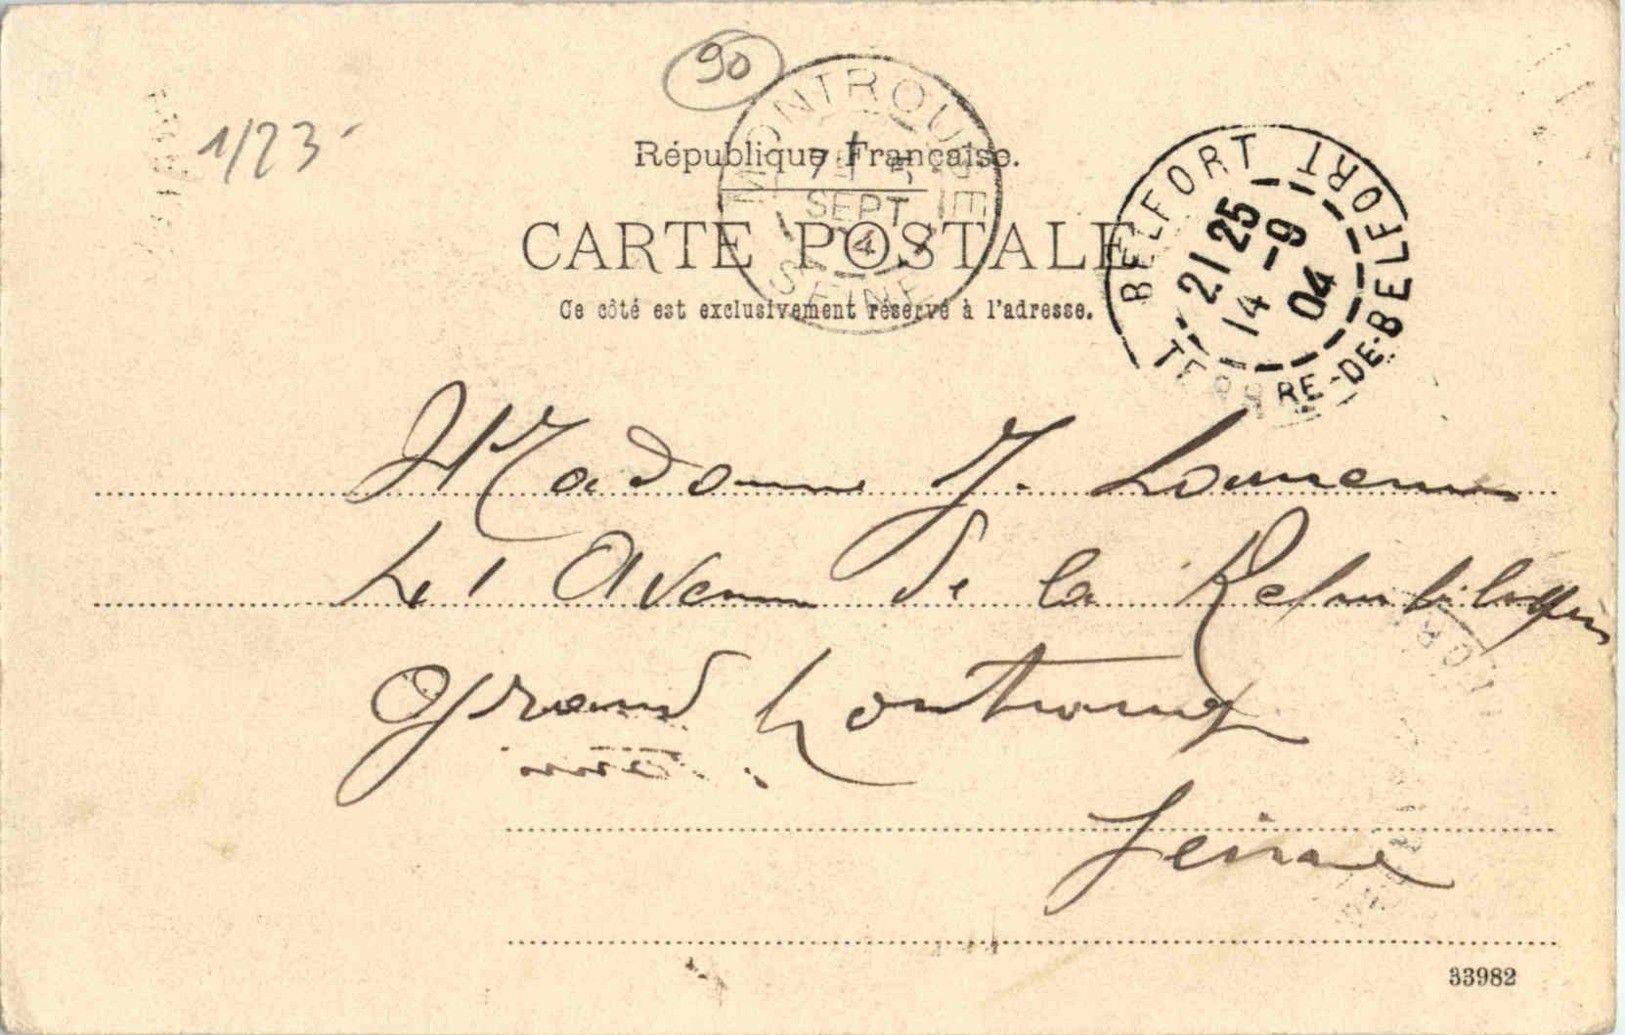 90
1/23
République Française.
MONTROUGE
SEPT
SEINE
CARTE POSTALE
Ce côté est exclusivement réservé à l'adresse.
BELFORT BELFORT
21 25
14 -9
04
TERRE-DE-BELFORT
Madame J.
41 Avenue de la République
Grand Montrouge
Seine
33982